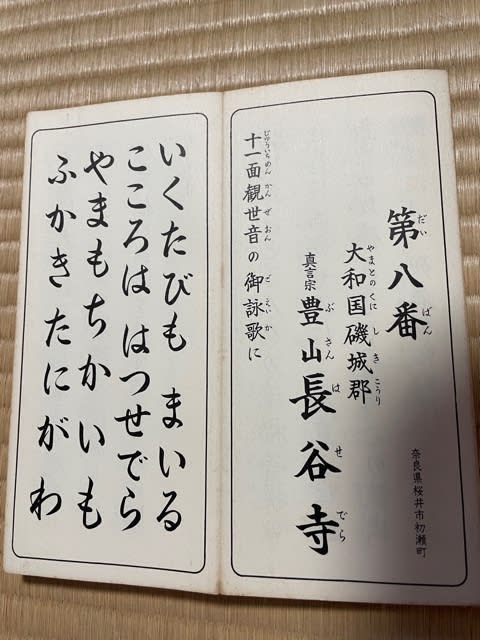 第八番
だいばん
大和国磯城郡
やまとのくにしきこうり
真言宗豊山長谷寺
ぶさんはせでら
奈良県桜井市初瀬町
十一面観世音の御詠歌に
じういちめんかんぜおんごえいか
いくたびも まいる
こころは はつせでら
やまもちかいも
ふかきたにがわ